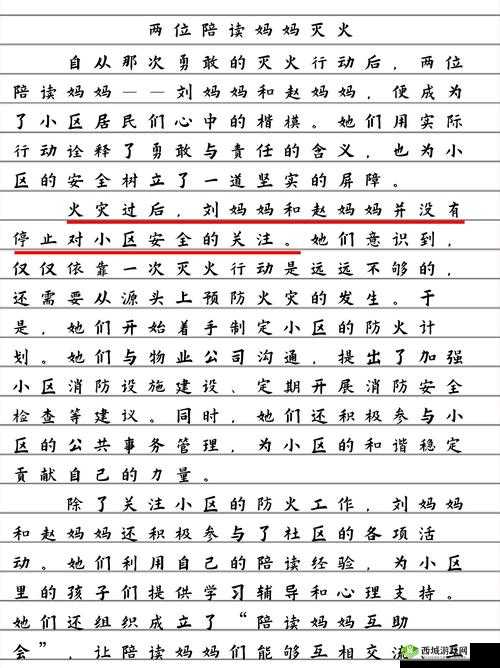 两位陪读妈妈灭火
自从那次勇敢的灭火行动后，两位
陪读妈妈——刘妈妈和赵妈妈，便成为
了小区居民们心中的楷模。她们用实际
行动诠释了勇敢与责任的含义，也为小
区的安全树立了一道坚实的屏障。
火灾过后，刘妈妈和赵妈妈并没有
停止对小区安全的关注。她们意识到，
仅仅依靠一次灭火行动是远远不够的，
还需要从源头上预防火灾的发生。于
是，她们开始着手制定小区的防火计
划。她们与物业公司沟通，提出了加强
小区消防设施建设、定期开展消防安全
检查等建议。同时，她们还积极参与小
区的公共事务管理，为小区的和谐稳定
贡献自己的力量。
除了关注小区的防火工作，刘妈妈
和赵妈妈还积极参与了社区的各项活
动。她们利用自己的陪读经验，为小区
里的孩子们提供学习辅导和心理支持。
她们还组织成立了“陪读妈妈互助
会”，让陪读妈妈们能够互相交流、互
西城游玩网